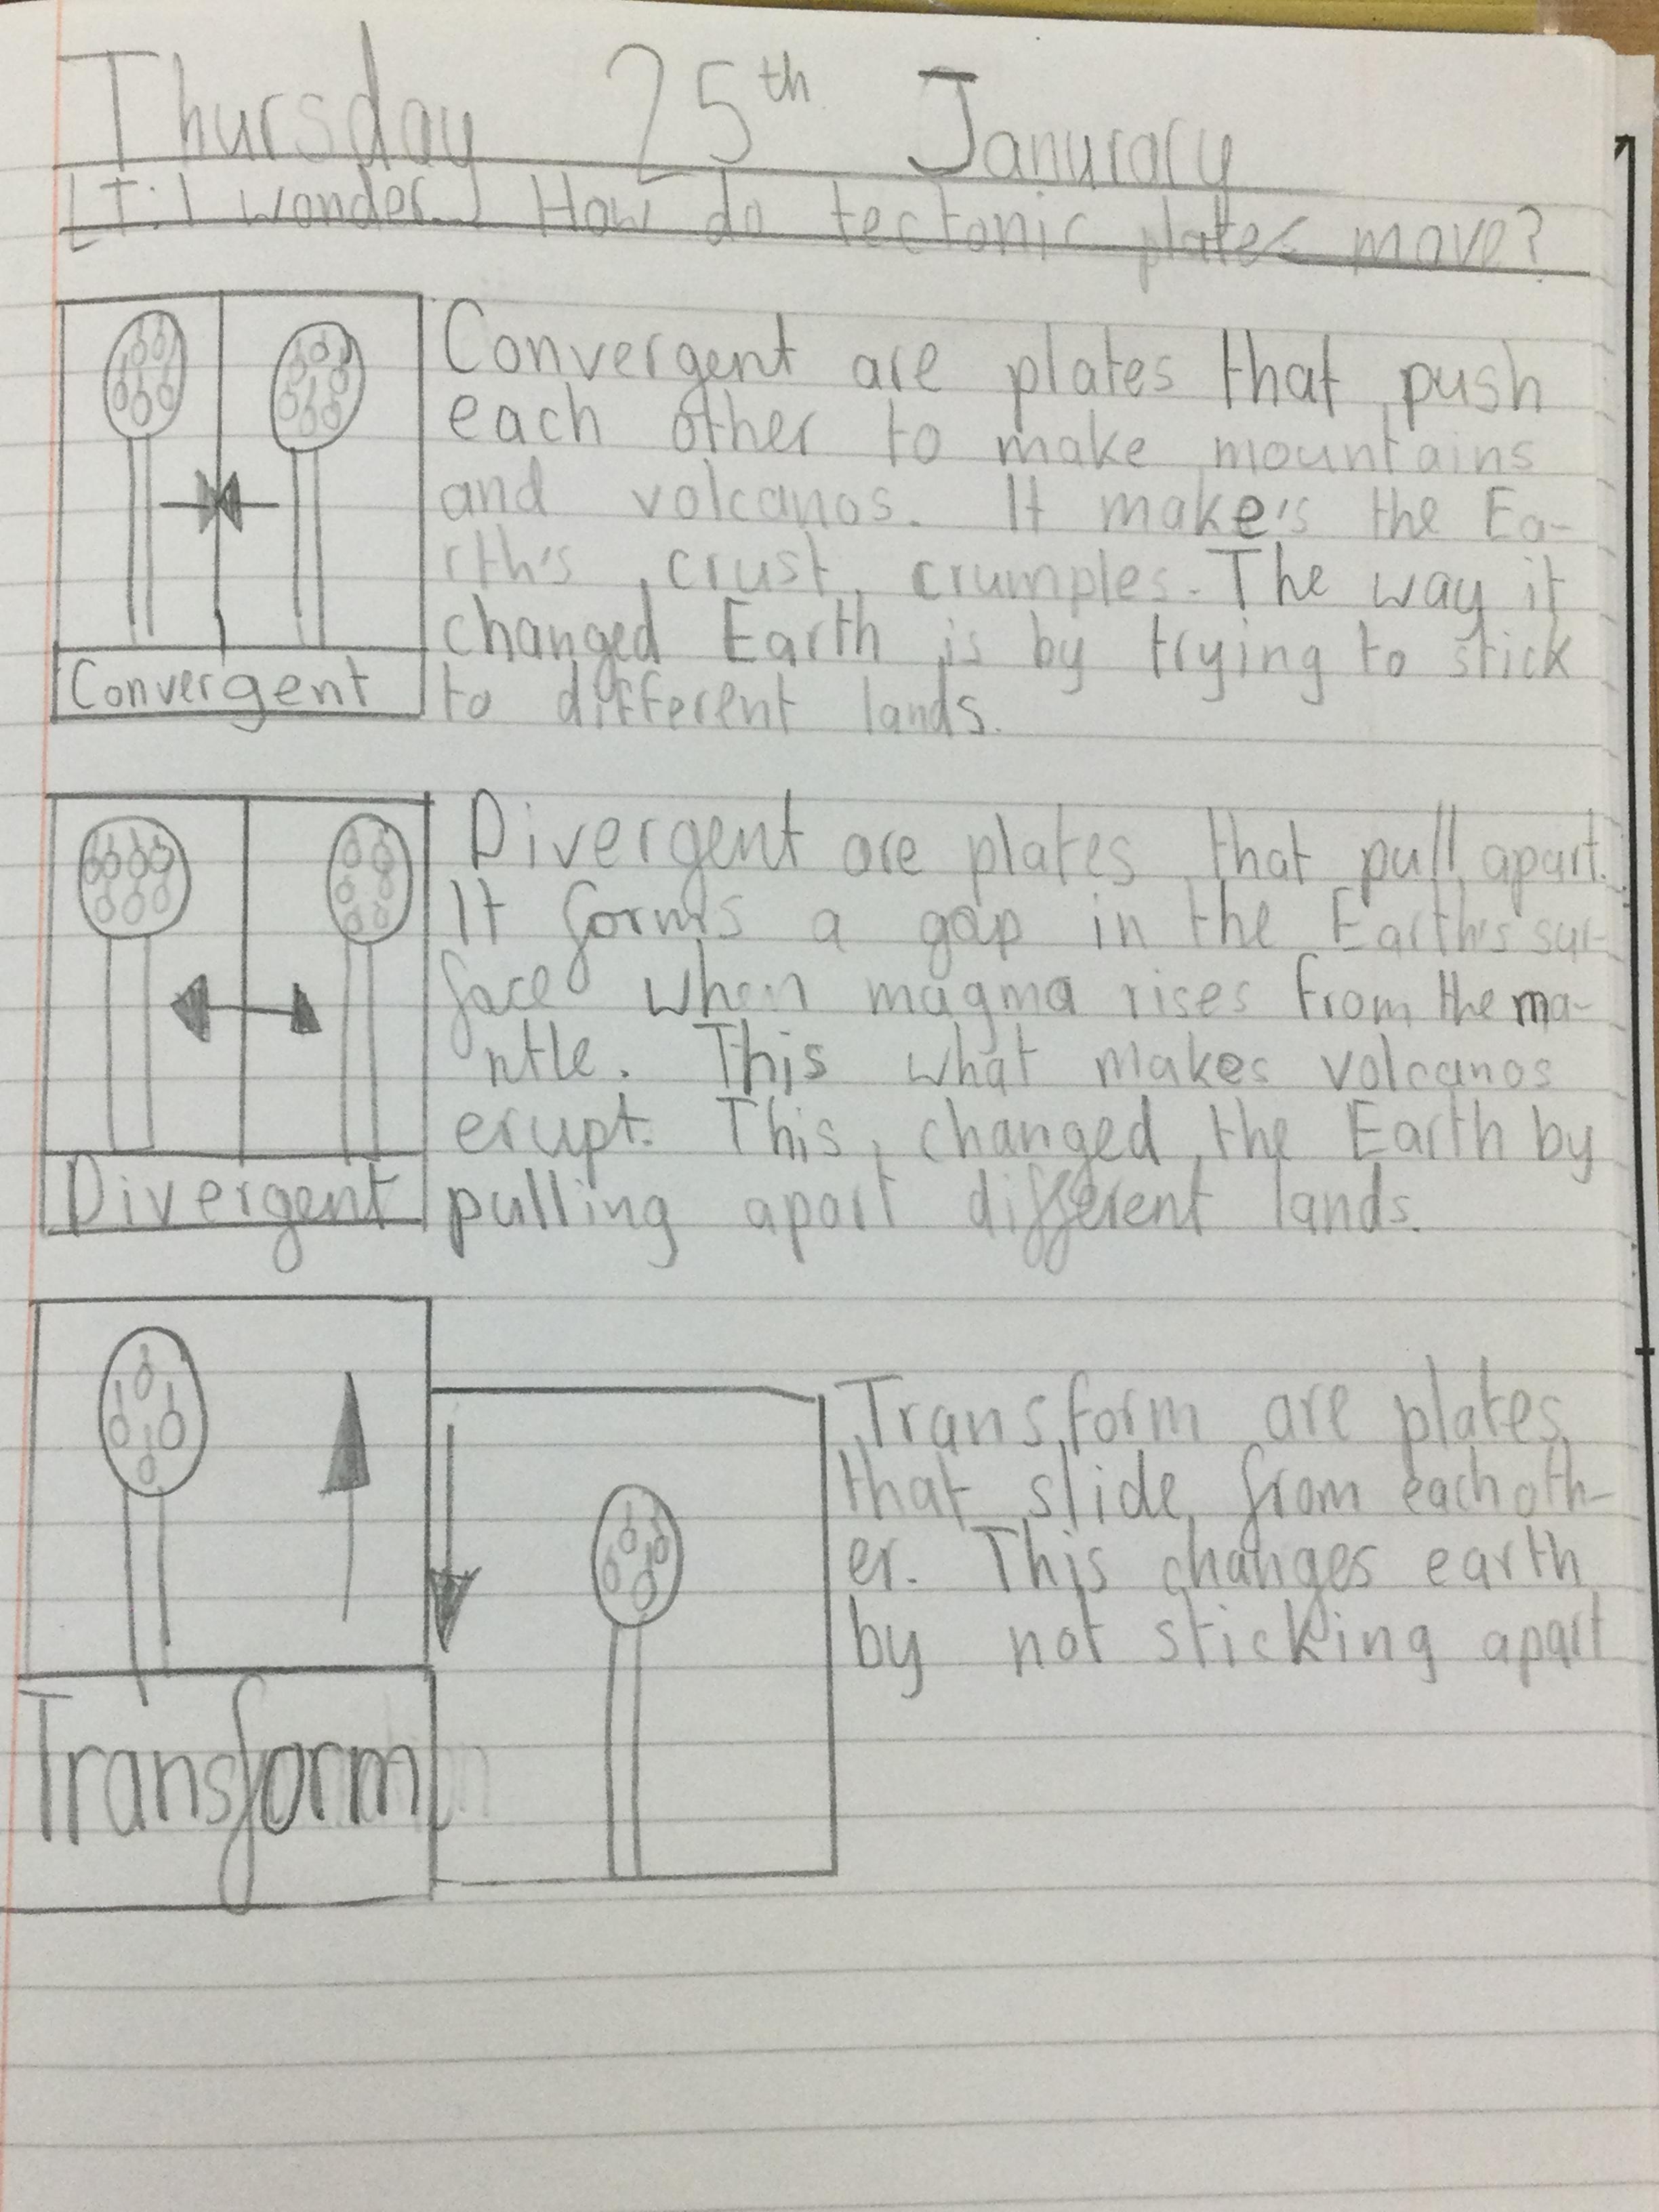 Thursday 25th Janurary
LT: I wonder... How do tectonic plates move?
Convergent are plates that push
each other to make mountains
and volcanos. It make's the Ea-
rth's crust crumples. The way it
changed Earth is by trying to stick
to different lands.
Convergent
Divergent are plates that pull apart.
It forms a gap in the Earth's sur-
face when magma rises from the ma-
ntle. This what makes volcanos
erupt. This changed the Earth by
pulling apart different lands.
Divergent
Transform are plates
that slide from each oth-
er. This changes earth
by not sticking apart
Transform